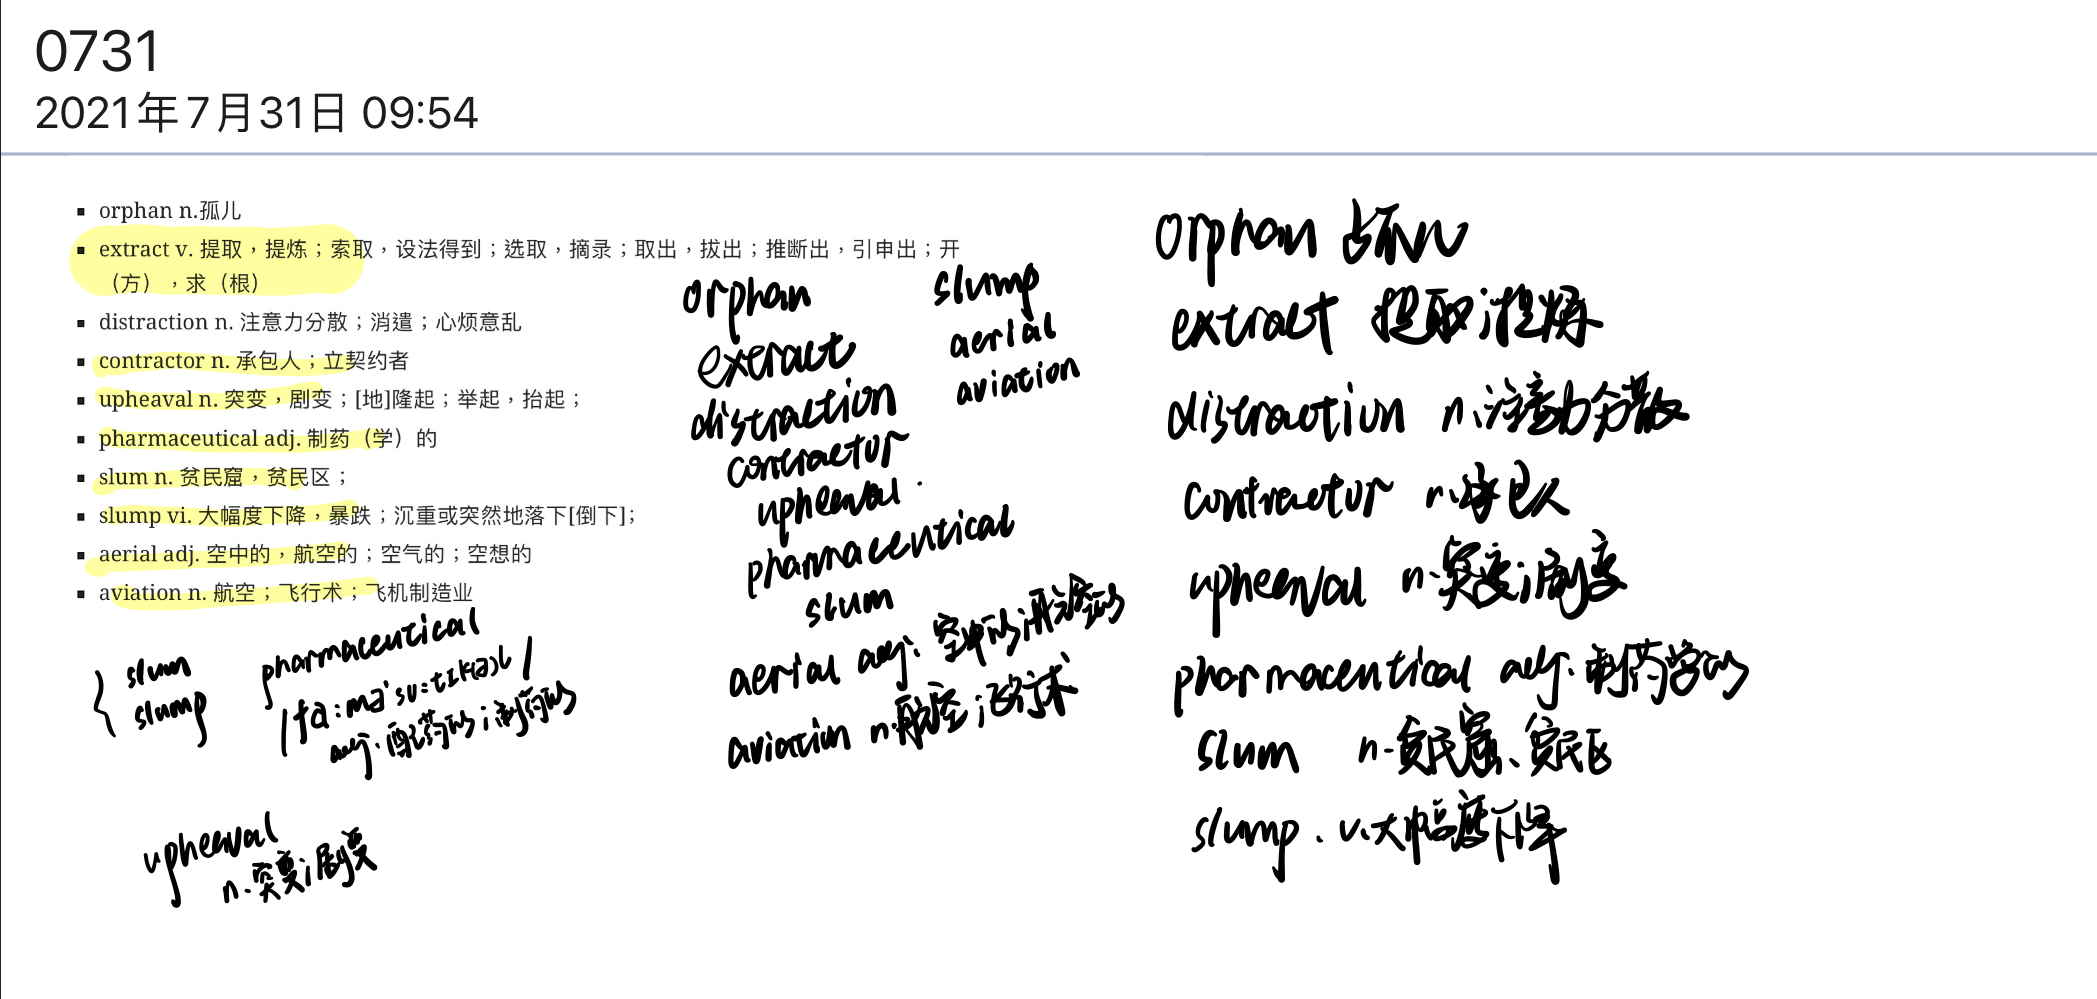 0731
2021年7月31日 09:54
▪ orphan n.孤儿
▪ extract v. 提取，提炼；索取，设法得到；选取，摘录；取出，拔出；推断出，引申出；开
（方），求（根）
▪ distraction n. 注意力分散；消遣；心烦意乱
▪ contractor n. 承包人；立契约者
▪ upheaval n. 突变，剧变；[地]隆起；举起，抬起；
▪ pharmaceutical adj. 制药（学）的
▪ slum n. 贫民窟，贫民区；
▪ slump vi. 大幅度下降，暴跌；沉重或突然地落下[倒下];
▪ aerial adj. 空中的，航空的；空气的；空想的
▪ aviation n. 航空；飞行术；飞机制造业
slum
slump
pharmaceutical
adj. 配药的；制药的
upheaval
n. 突变；剧变
orphan
extract
distraction
contractor
upheaval.
pharmaceutical
slum
slump
aerial
aviation
aerial adj. 空中的；
aviation n. 航空；飞行术
orphan
extract 提取；提炼
distraction n. 注意力分散
contractor n. 承包人
upheaval n. 突变；剧变
pharmaceutical adj. 制药学的
slum n. 贫民窟、贫民区
slump. v. 大幅度下降